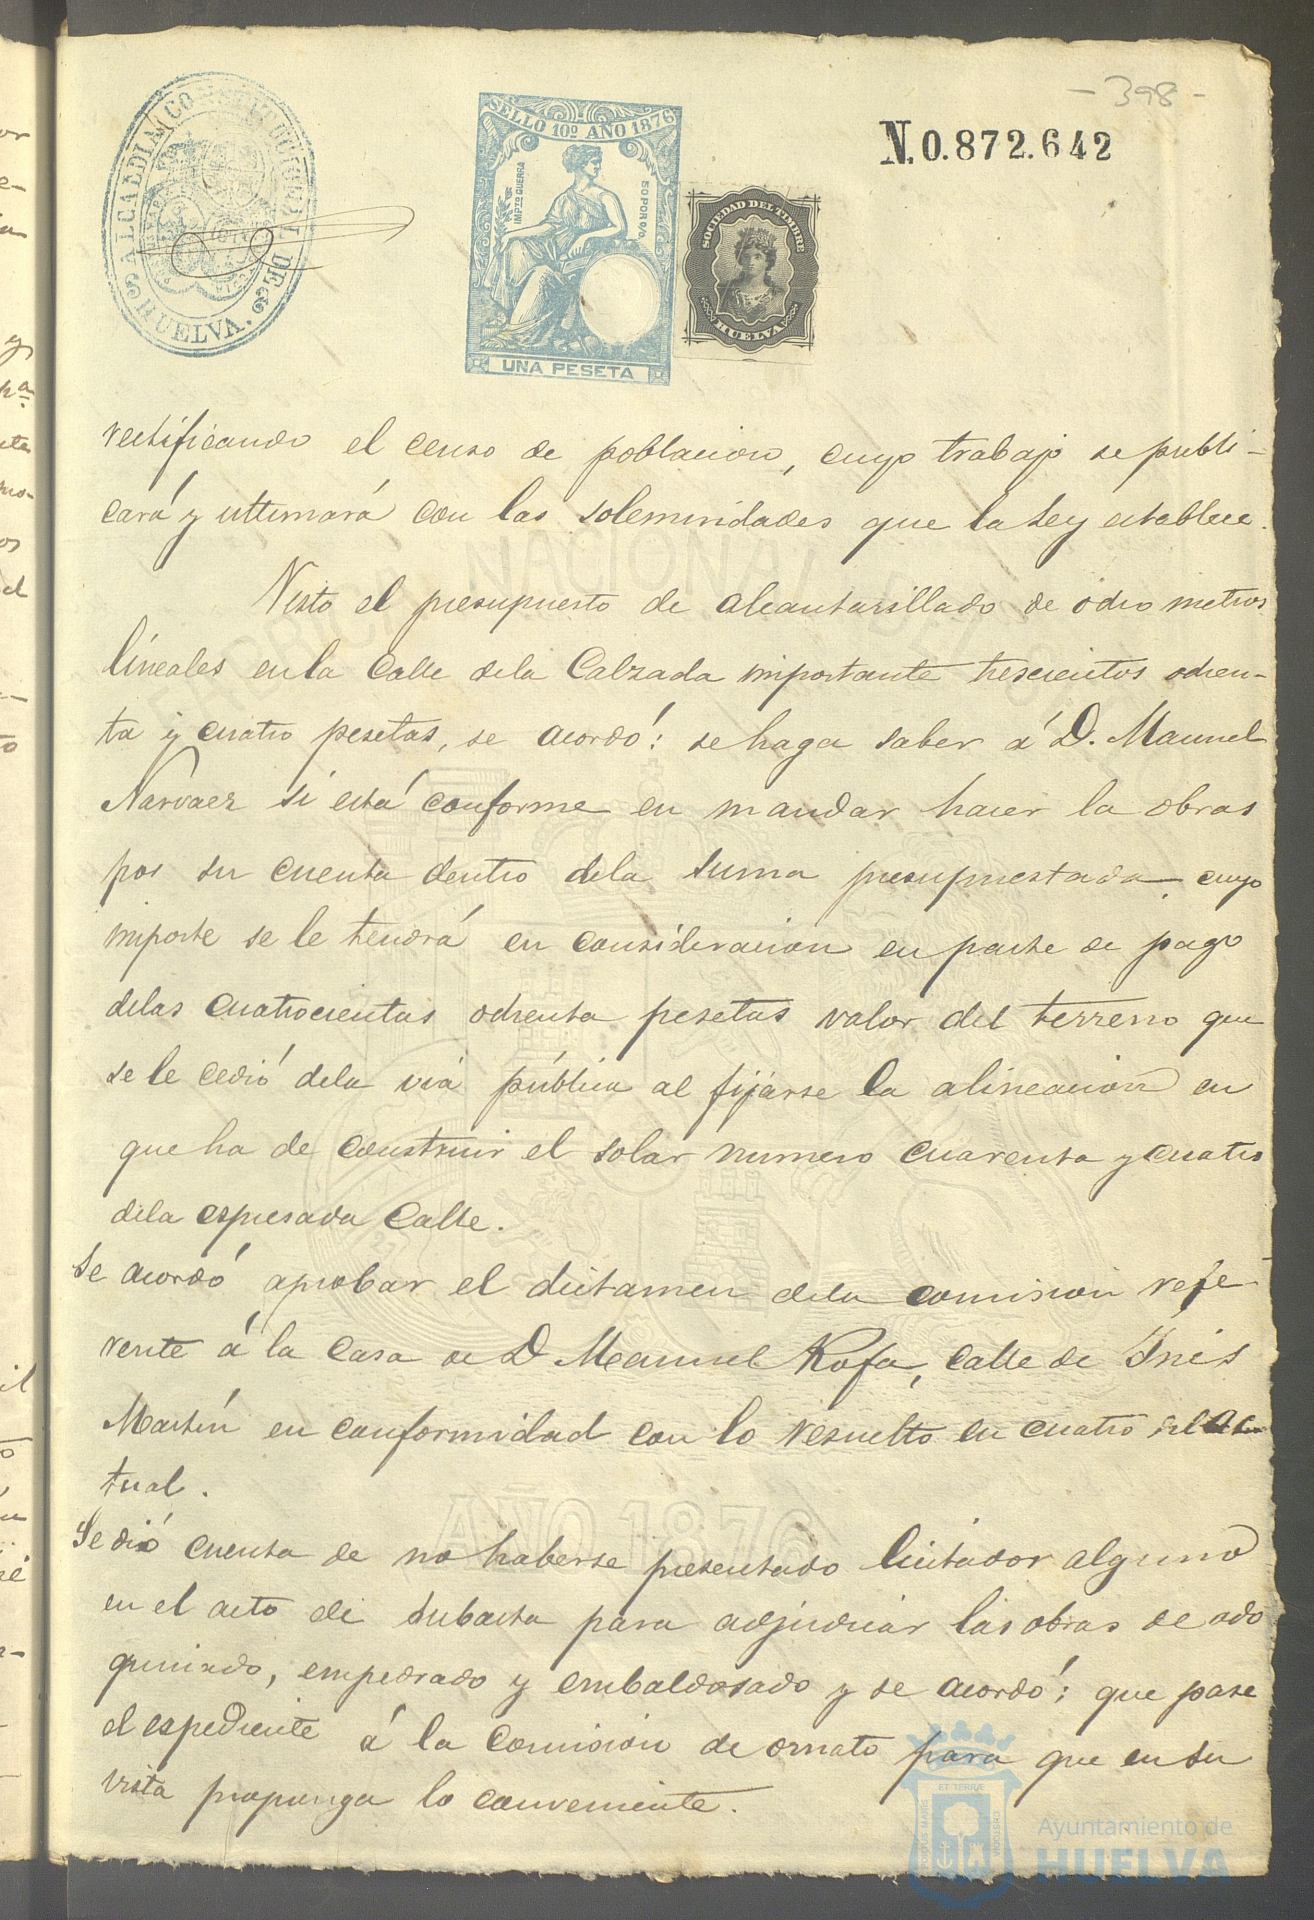 - 398 -
N. 0.872.642
ALCALDIA CONSTITUCIONAL DE HUELVA.
SELLO 10º AÑO 1876
IMPTO GUERRA
50 POR C/O.
UNA PESETA
SOCIEDAD DEL TIMBRE
HUELVA
rectificando el censo de poblacion, cuyo trabajo se publi-
cará y ultimará con las solemnidades que la Ley establece.
Visto el presupuesto de alcantarillado de ocho metros
líneales en la Calle dela Calzada importante trescientos ochen-
ta y cuatro pesetas, se acordó: se haga saber á D. Manuel
Narvaez si está conforme en mandar hacer la obras
por su cuenta dentro dela suma presupuestada, cuyo
importe se le tendrá en consideracion en parte de pago
delas cuatrocientas ochenta pesetas valor del terreno que
se le cedió dela via pública al fijarse la alineacion en
que ha de construir el solar numero cuarenta y cuatro
dela espresada Calle.
Se acordó aprobar el dictamen dela comision refe-
rente á la Casa de D Manuel Rofa, calle de Inés
Martín en conformidad con lo resuelto en cuatro del ac
tual.
Se dió cuenta de no haberse presentado licitador alguno
en el acto de subasta para adjudicar las obras de ado
quinado, empedrado y embaldosado y se acordó; que pase
el espediente á la Comision de ornato para que en su
vista proponga lo conveniente.
FABRICA NACIONAL DEL
AÑO 1876
ET TERRÆ
PORTUS MARIS
CUSTODIA
Ayuntamiento de
HUELVA